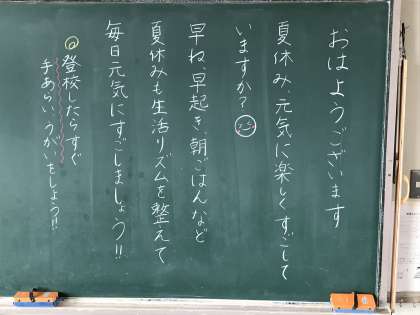 おはようございます
夏休み、元気に楽しくすごして
いますか?
早ね、早起き、朝ごはんなど
夏休みも生活リズムを整えて
毎日元気にすごしましょう!!
登校したらすぐ
手あらい、うがいをしよう!!